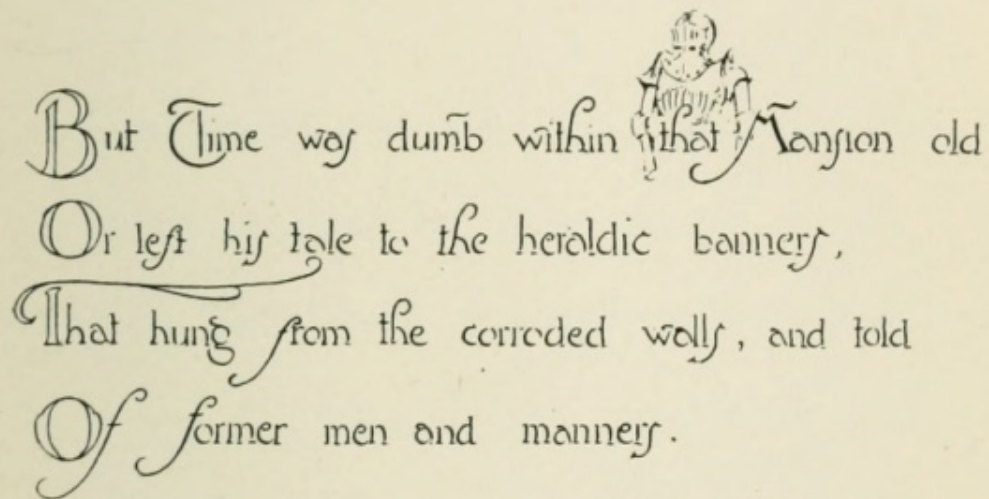 But Time was dumb within that Mansion old
Or left his tale to the heraldic banners,
That hung from the corroded walls, and told
Of former men and manners.